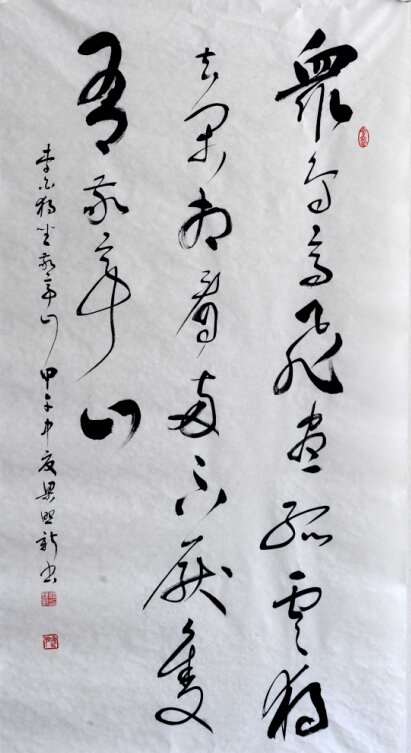 眾鳥高飛盡孤雲獨
去閑相看兩不厭隻
有敬亭山
李白獨坐敬亭山 甲午中夏新書